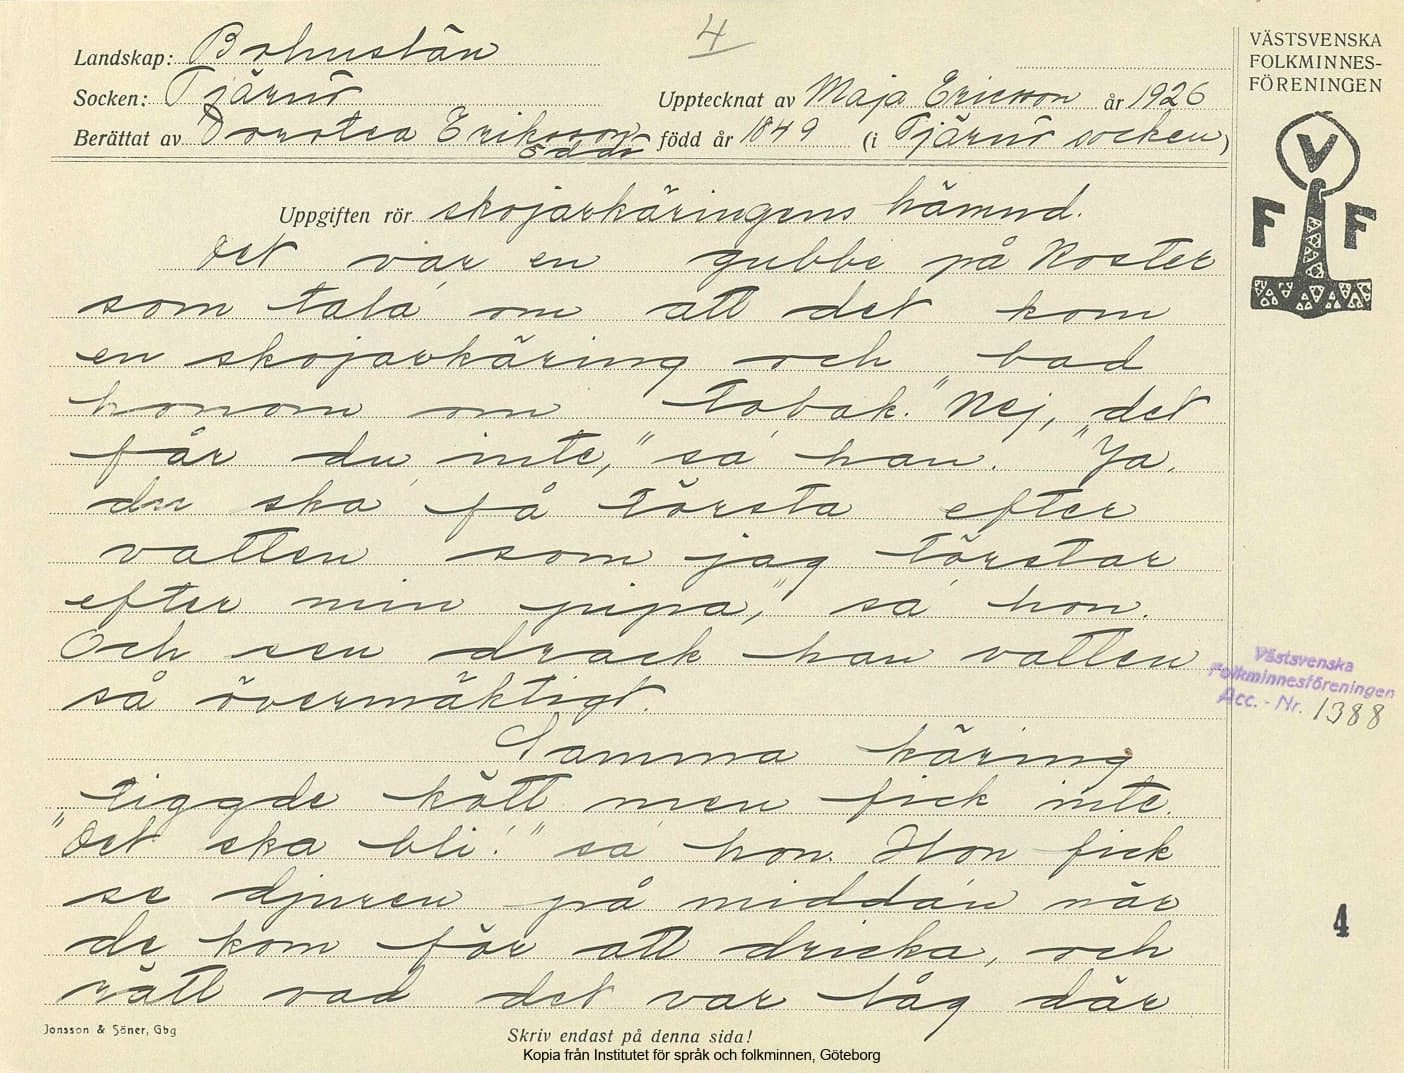 4
Landskap: Bohuslän
Socken: Tjärnö
Upptecknat av Maja Ericsson år 1926
Berättat av Dorotea Eriksson född år 1849 (i Tjärnö socken)
Öddö
VÄSTSVENSKA
FOLKMINNES-
FÖRENINGEN
V
F F
Uppgiften rör skojarkäringens hämnd.
Det var en gubbe på Koster
som tala' om att det kom
en skojarkäring och bad
honom om tobak. "Nej, det
får du inte," sa' han. "Ja,
du ska' få törsta efter
vatten som jag törstar
efter min pipa," sa' hon.
Och sen drack han vatten
så övermäktigt.
Samma käring
tiggde kött men fick inte.
"Det ska bli!" sa' hon. Hon fick
se djuren på middán när
de kom för att dricka, och
rätt vad det var låg där
Västsvenska
Folkminnesföreningen
Acc. - Nr. 1388
4
Jonsson & Söner, Gbg
Skriv endast på denna sida!
Kopia från Institutet för språk och folkminnen, Göteborg